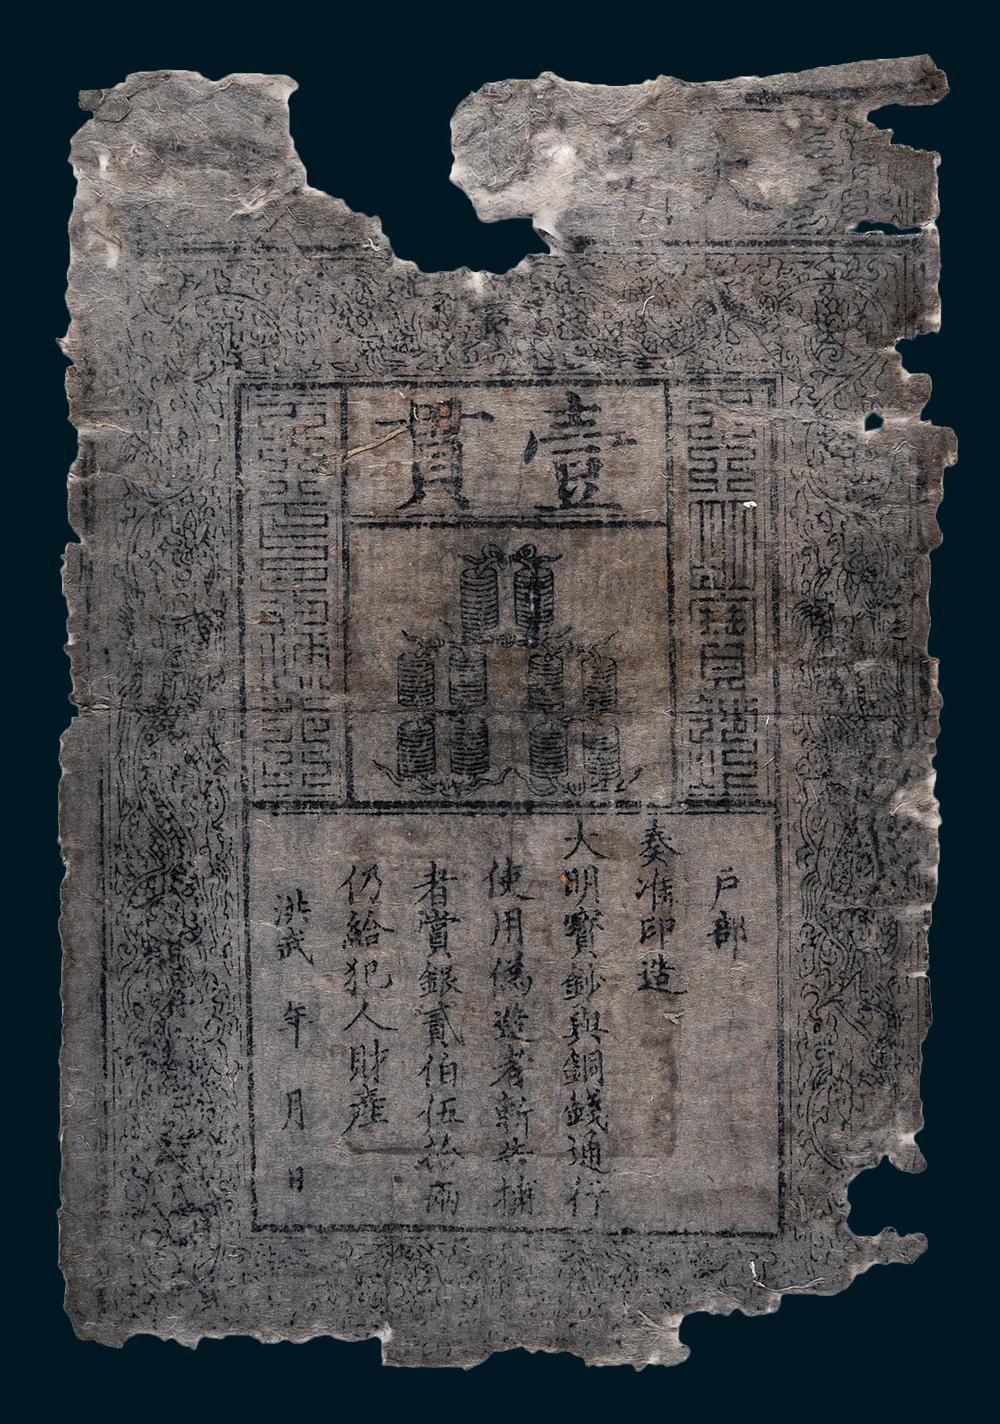 大
壹貫
大明寶鈔
天下通行
戶部
奏准印造
大明寶鈔與銅錢通行
使用偽造者斬告捕
者賞銀貳伯伍拾兩
仍給犯人財產
洪武 年 月 日